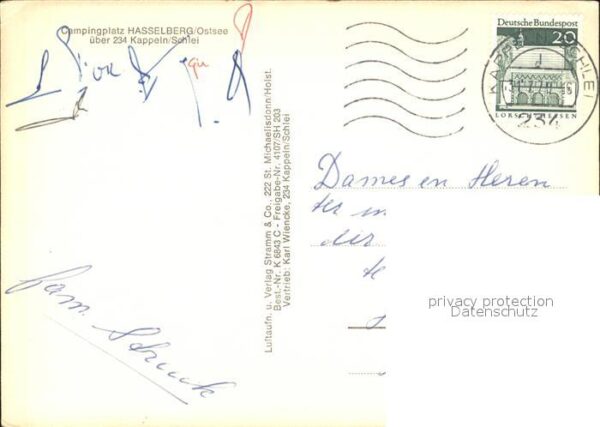 Campingplatz HASSELBERG/Ostsee
über 234 Kappeln/Schlei
Deutsche Bundespost
20
LORSCH/HESSEN
KAPPELN SCHLEI
234
Luftaufn. u. Verlag Stramm & Co., 222 St. Michaelisdonn/Holst.
Best.-Nr. K 6843 C - Freigabe-Nr. 4107/SH 203
Vertrieb: Karl Wiencke, 234 Kappeln/Schlei
Dames en Heren
ter
der
fam. Struck
privacy protection
Datenschutz